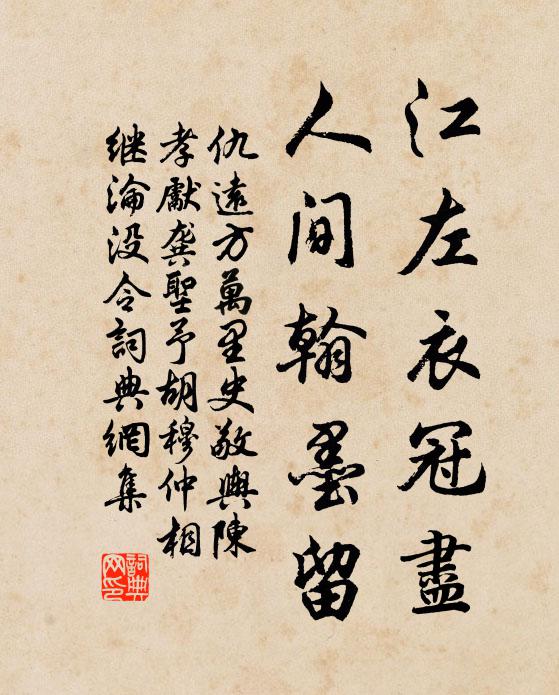 江左衣冠盡
人間翰墨留
仇遠方萬里史敬輿陳
孝獻龔聖予胡穆仲相
继淪没令詞典網集
詞典
网印